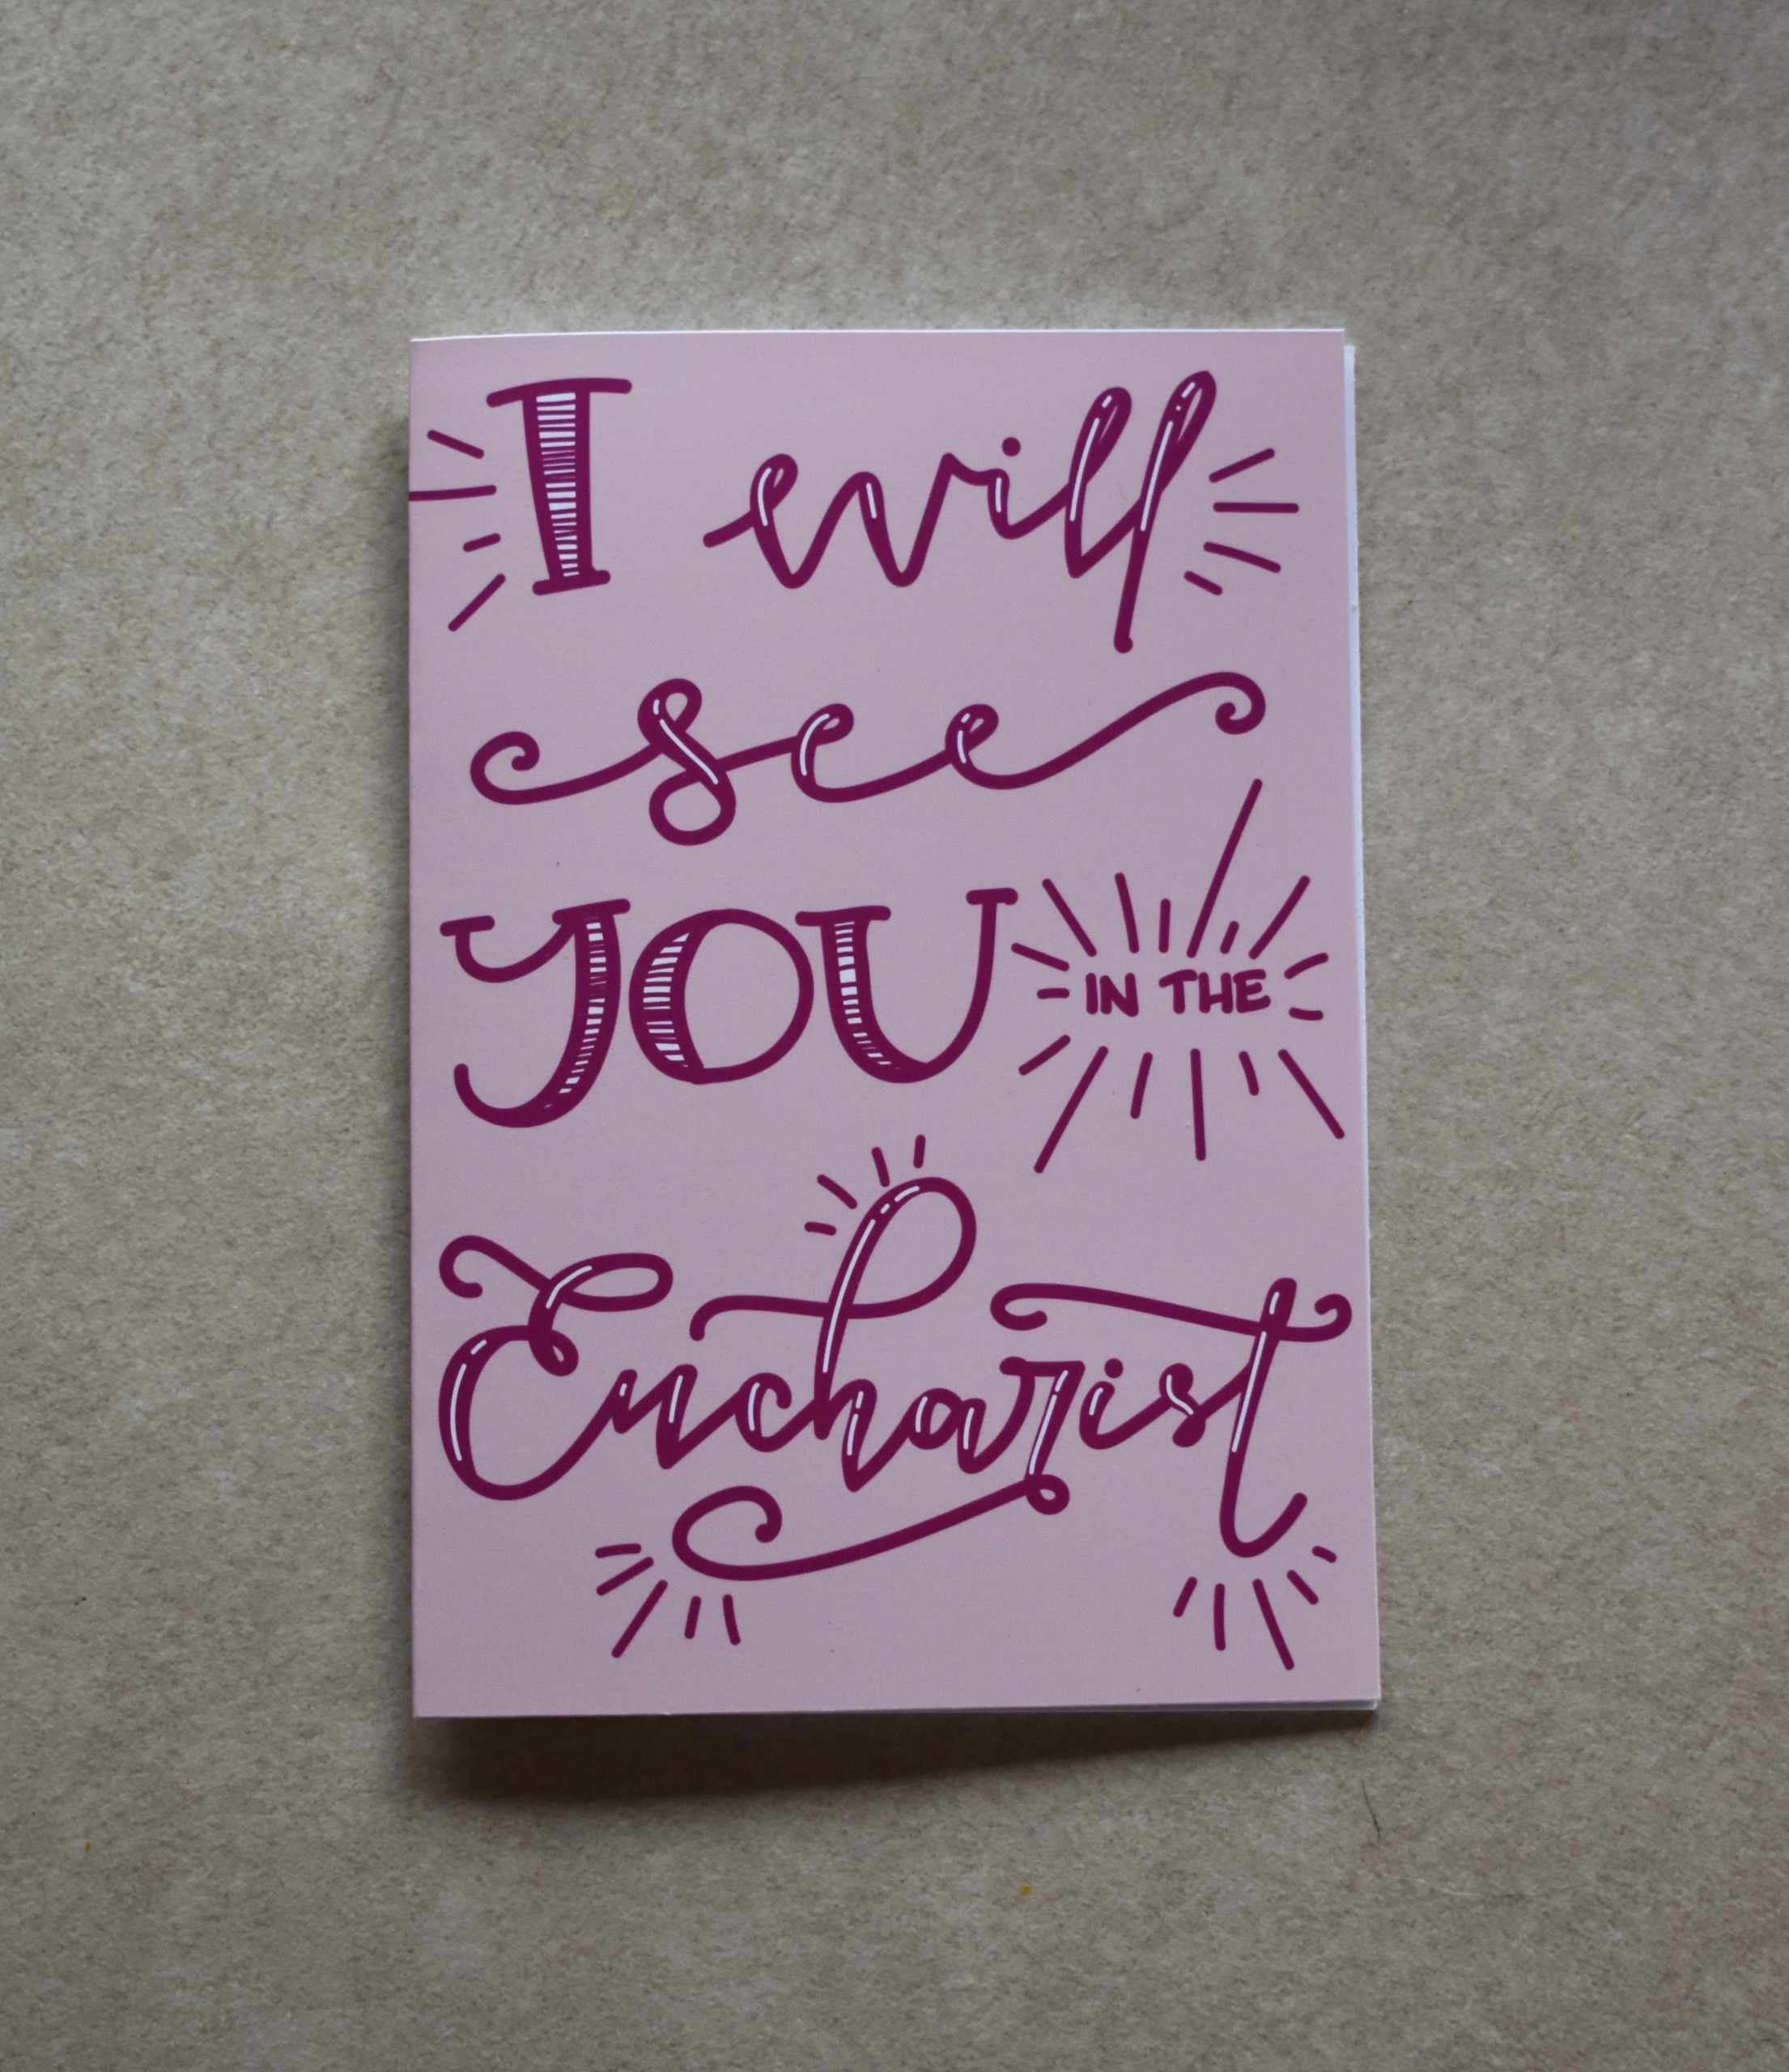 I will
see
YOU IN THE
Eucharist